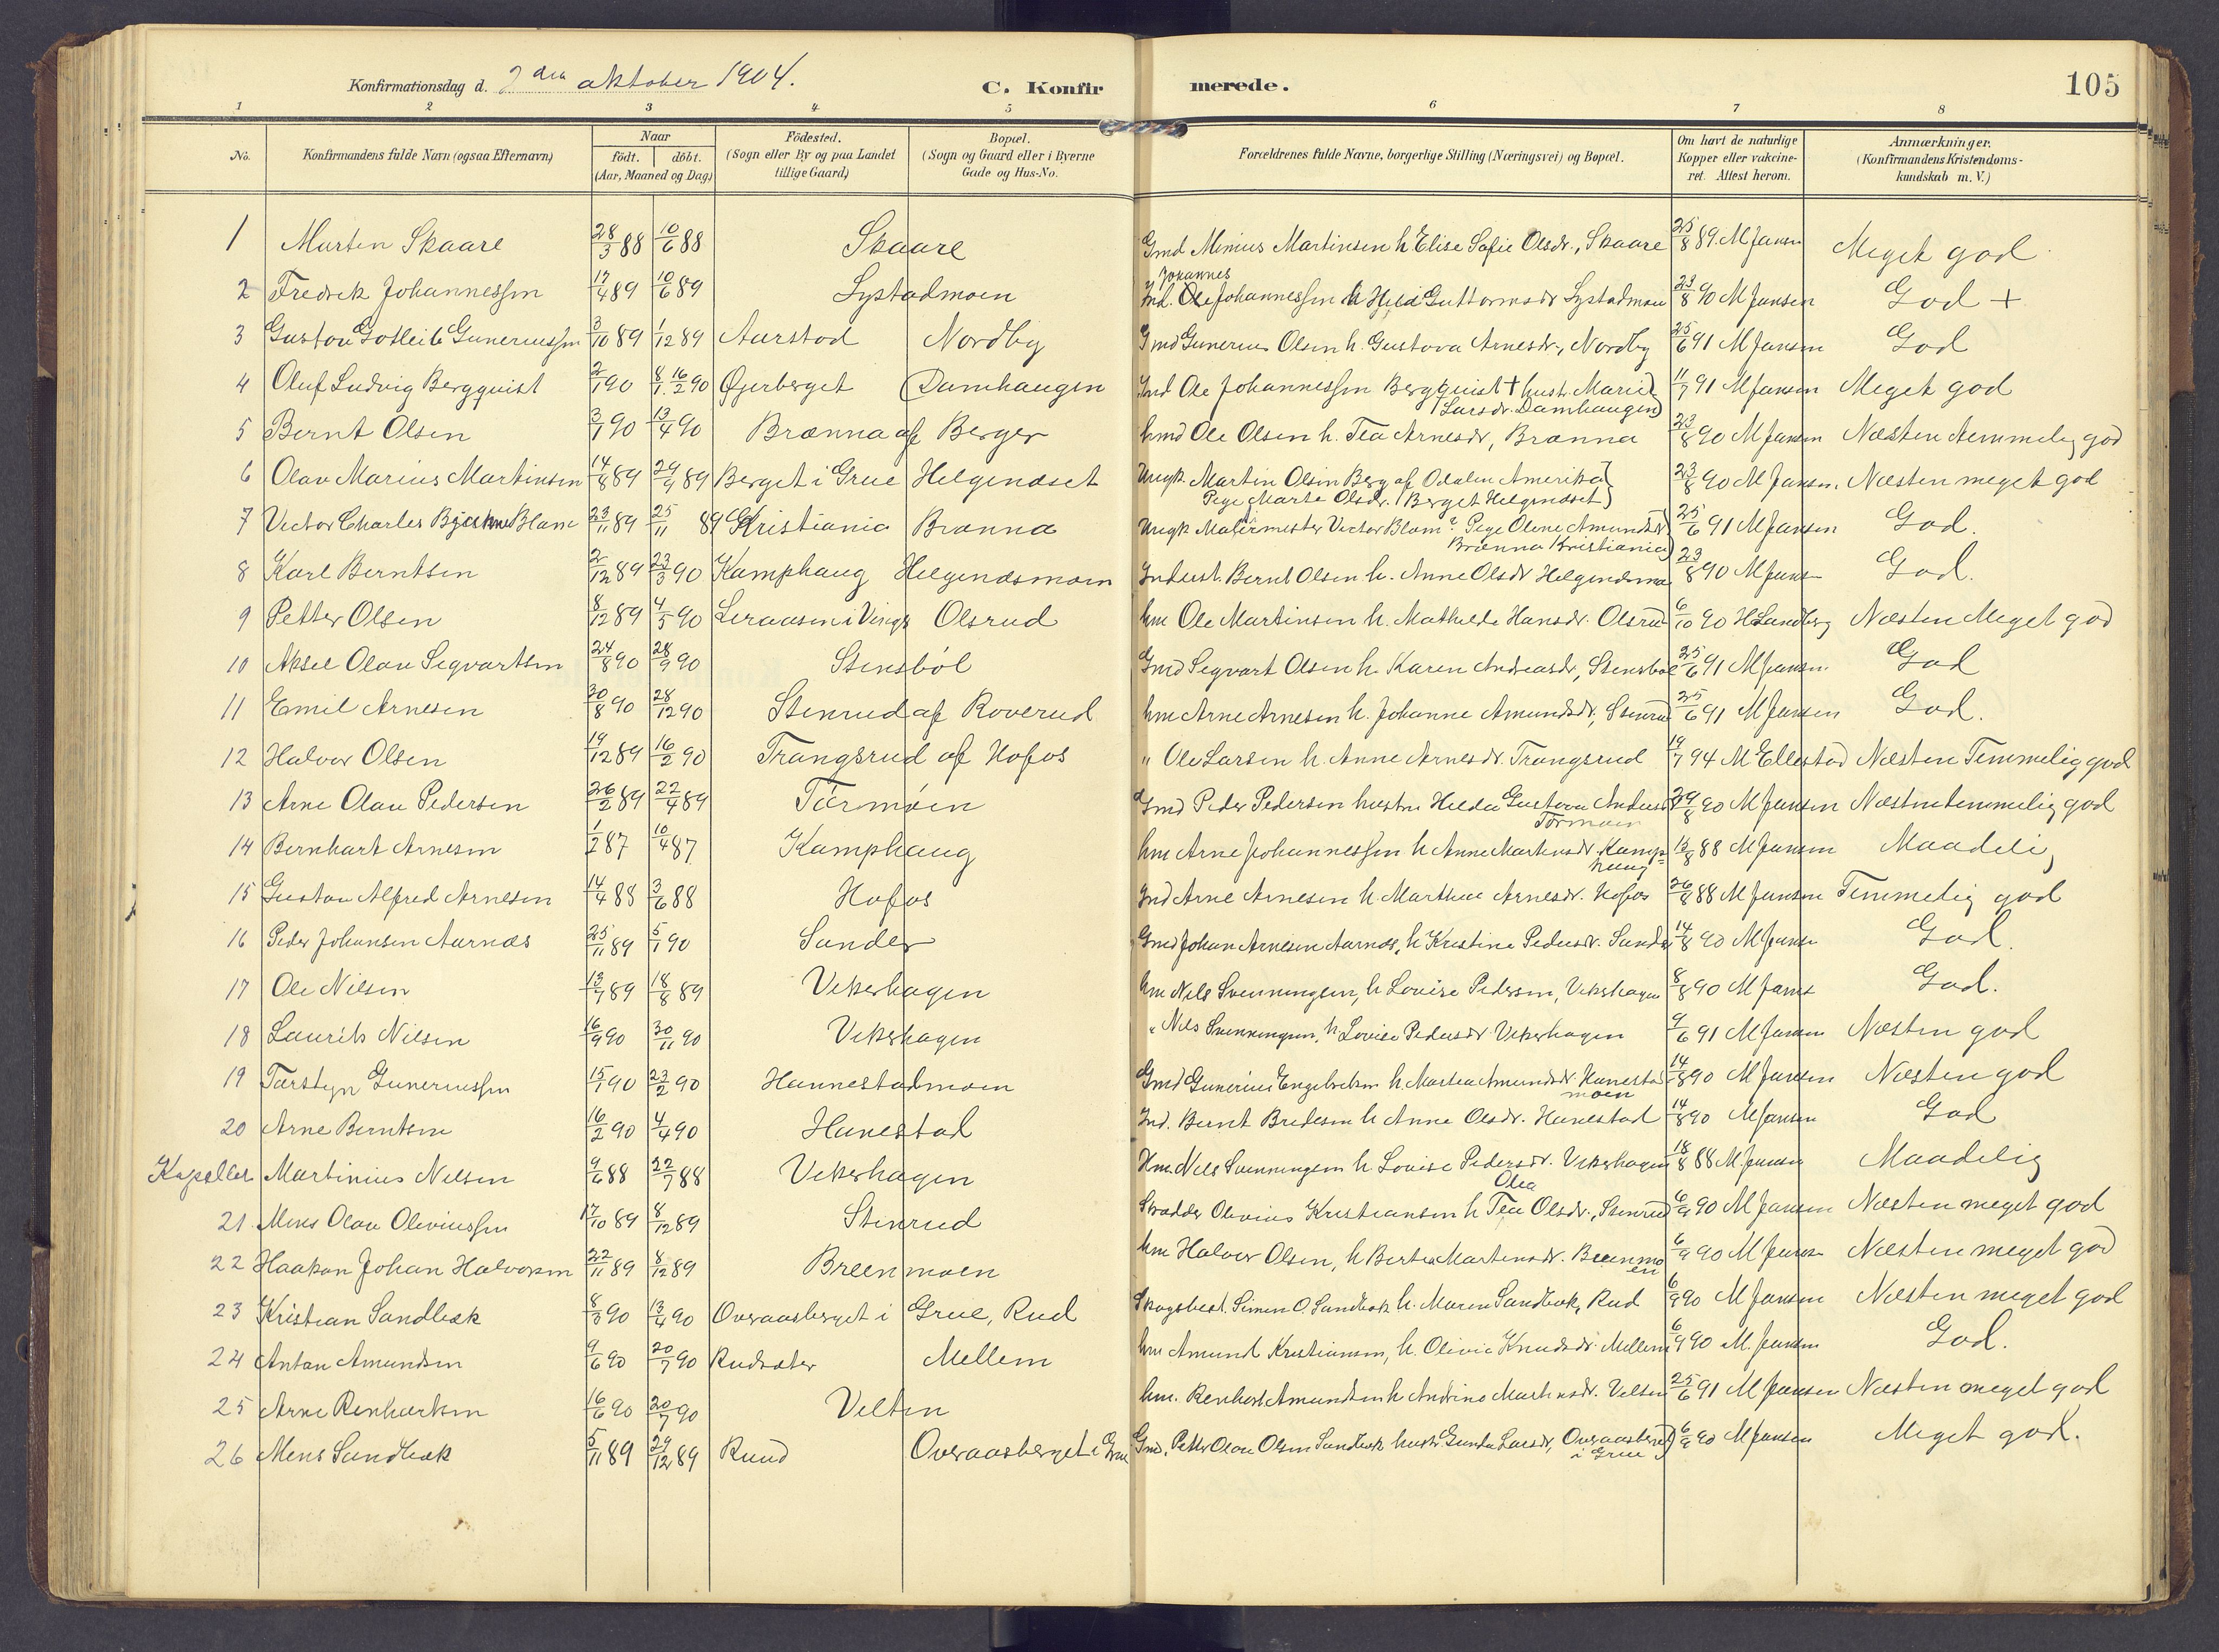 Konfirmationsdag d. 2den oktober 1904. C. Konfir merede. 105
1 2 3 4 5 6 7 8
No. Konfirmandens fulde Navn (ogsaa Efternavn) Naar födt. döbt. (Aar, Maaned og Dag) Födested. (Sogn eller By og paa Landet tillige Gaard) Bopæl. (Sogn og Gaard eller i Byerne Gade og Hus-No. Forældrenes fulde Navne, borgerlige Stilling (Næringsvei) og Bopæl. Om havt de naturlige Kopper eller vakcineret. Attest herom. Anmærkninger. (Konfirmandens Kristendomskundskab m. V.)
1 Martin Skaare 28/3 88 10/6 88 Skaare Gmd Minius Martinsen h Elise Sofie Olsdr., Skaare 25/8 89. M Jansen Meget god
2 Fredrek Johannessen 17/4 89 10/6 89 Lystadmoen Ind. Johannes Johannessen h Guttormsdr Lystadmoen 23/8 90 M Jansen God +
3 Gustav Gotleib Guneriussen 3/10 89 1/12 89 Aarstad Nordby Gmd Gunerius Olsen h. Gustava Arnesdr., Nordby 25/6 91 M Jansen God
4 Oluf Ludvig Bergquist 2/1 90 8/1. 16/2 90 Øgerberget Damhaugen Ind Ole Johannessen Bergquist + hustr. Marie
Larsdr. Damhaugen) 11/7 91 M Jansen Meget god
5 Bernt Olsen 3/1 90 13/4 90 Brænna af Berger hmd Ole Olsen h. Tea Arnesdr, Brænna 23/8 90 M Jansen Næsten temmelig god
6 Olav Marius Martinsen 14/8 89 29/9 89 Berget i Grue Helgenæset Ungk. Martin Olsen Berg af Odalen Amerika
Pige Marte Olsdr. (Berget Helgenæset) 23/8 90 M Jansen. Næsten meget god
7 Victor Charles Blom 23/11 89 25/11 89 Kristiania Brænna Ungk Malermester Victor Blom Pige Oline Amundsdr
Brænna Kristiania) 25/6 91 M Jansen God.
8 Karl Berntsen 2/12 89 23/3 90 Kamphaug Helgenæsmoen Inderst. Bernt Olsen h. Anne Olsdr Helgenæsmo 23/8 90 M Jansen God.
9 Petter Olsen 8/12 89 4/5 90 Leraasen i Vinger Olsrud hm Ole Martinsen h. Mathilde Hansdr. Olsrud 6/10 90 H Sandberg Næsten Meget god
10 Aksel Olav Segvartsen 24/8 90 28/9 90 Stensböl Gmd Segvart Olsen h. Karen Andreasdr, Stensböl 25/6 91 M Jansen God
11 Emil Arnesen 30/8 90 28/12 90 Stenrud af Roverud hm Arne Arnesen h. Johanne Amundsdr, Stenrud 25/6 91 M Jansen God.
12 Halvor Olsen 19/12 89 16/2 90 Trangsrud af Hofos " Ole Larsen h. Anne Arnesdr. Trangsrud 19/7 94 M Ellestad Næsten Temmelig god
13 Arne Olav Pedersen 26/2 89 22/4 89 Tørmoen Gmd Peder Pedersen hustru Helda Gustava Andersdr
Tormoen 29/8 90 M Jansen Næsten temmelig god
14 Bernhart Arnesen 1/2 87 10/4 87 Kamphaug hm Arne Johannessen h Anne Martinsdr. Kamp=
haug 13/8 88 M Jansen Maadeli
15 Gustav Alfred Arnesen 14/4 88 3/6 88 Hofos Ind Arne Arnesen h. Marthea Arnesdr. Hofos 26/8 88 M Jansen Temmelig god
16 Peder Johansen Aarnæs 25/11 89 5/1 90 Sander Gmd Johan Arnesen Aarnæs, h Kristine Pedersdr. Sander 14/8 90 M Jansen God.
17 Ole Nilsen 13/7 89 18/8 89 Vekerhagen hm Nils Svenningsen, h Lovise Pedersen, Vekerhagen 8/8 90 M Jansen God.
18 Laurits Nilsen 16/9 90 30/11 90 Vekerhagen " Nils Svenningsen, h Lovise Pedersdr Vekerhagen 9/6 91 M Jansen Næsten god
19 Tarstyn Gunerussen 15/1 90 23/2 90 Hannestadmoen Gmd Gunerius Engebretsen h. Martea Amundsdr. Hanestad
moen 14/8 90 M Jansen Næsten god
20 Arne Berntsen 16/2 90 4/4 90 Hanestad Ind. Bernt Bredesen h Anne Olsdr. Hanestad 14/8 90 M Jansen God
Kapeller Martinius Nilsen 9/6 88 22/7 88 Vekerhagen Hm. Nils Svenningsen h Lovise Pedersdr. Vekerhagen 18/8 88 M Jansen Maadelig
21 Mens Olav Oliviussen 17/10 89 8/12 89 Stenrud Skrædder Olivius Kristiansen h Olea Tea Olsdr., Stenrud 6/9 90 M Jansen Næsten meget god
22 Haakon Johan Halvorsen 22/11 89 8/12 89 Breenmoen hm Halvor Olsen, h Bertea Martinsdr. Breenmo
en 6/9 90 M Jansen Næsten meget god
23 Kristian Sandbæk 8/3 90 13/4 90 Overaasberget i Grue, Rud Skogsbest. Simen O. Sandbæk h. Maren Sandbæk, Rud 6/9 90 M Jansen Næsten meget god
24 Anton Amundsen 9/6 90 20/7 90 Rudsæter Mellem hm Amund Kristiansen, h. Olivie Knudsdr. Mellem 6/9 90 M. Jansen God.
25 Arne Renhartsen 16/6 90 20/7 90 Velten hm. Renhart Amundsen h Andrine Martinsdr. Velten 25/6 91 M Jansen Næsten meget god
26 Mens Sandbæk 5/11 89 29/12 89 Ruud Overaasberget i Grue Gmd. Petter Olav Olsen Sandbæk hustr. Gunda Larsdr, Overaasberget
i Grue) 6/9 90 M Jansen Meget god.